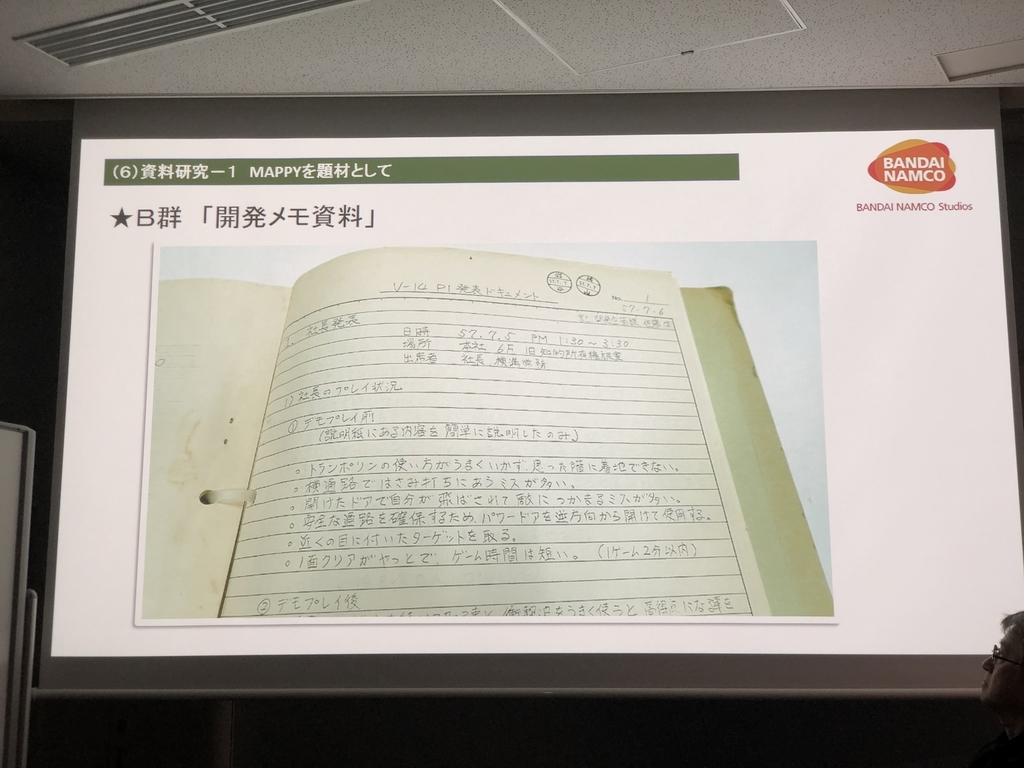 (6)資料研究－1 MAPPYを題材として
BANDAI
NAMCO
BANDAI NAMCO Studios
★B群 「開発メモ資料」
V-14 P1 発表ドキュメント
No. 1
57.7.6
1. 社長発表
日時 57.7.5 PM 1:30～3:30
場所 本社 6F 旧知的所有権
出席者 社長
1) 社長のプレイ状況
① デモプレイ前
(説明紙にある内容を簡単に説明したのみ)
○ トランポリンの使い方がうまくいかず、思った階に着地できない。
○ 横通路ではさみ打ちにあうミスが多い。
○ 開けたドアで自分が飛ばされて敵につかまるミスが多い。
○ 安全な通路を確保するため、パワードアを逆方向から開けて使用する。
○ 近くの目に付いたターゲットを取る。
○ 1面クリアがやっとで、ゲーム時間は短い。 (1ゲーム2分以内)
② デモプレイ後
をうまく使うと高得点になる